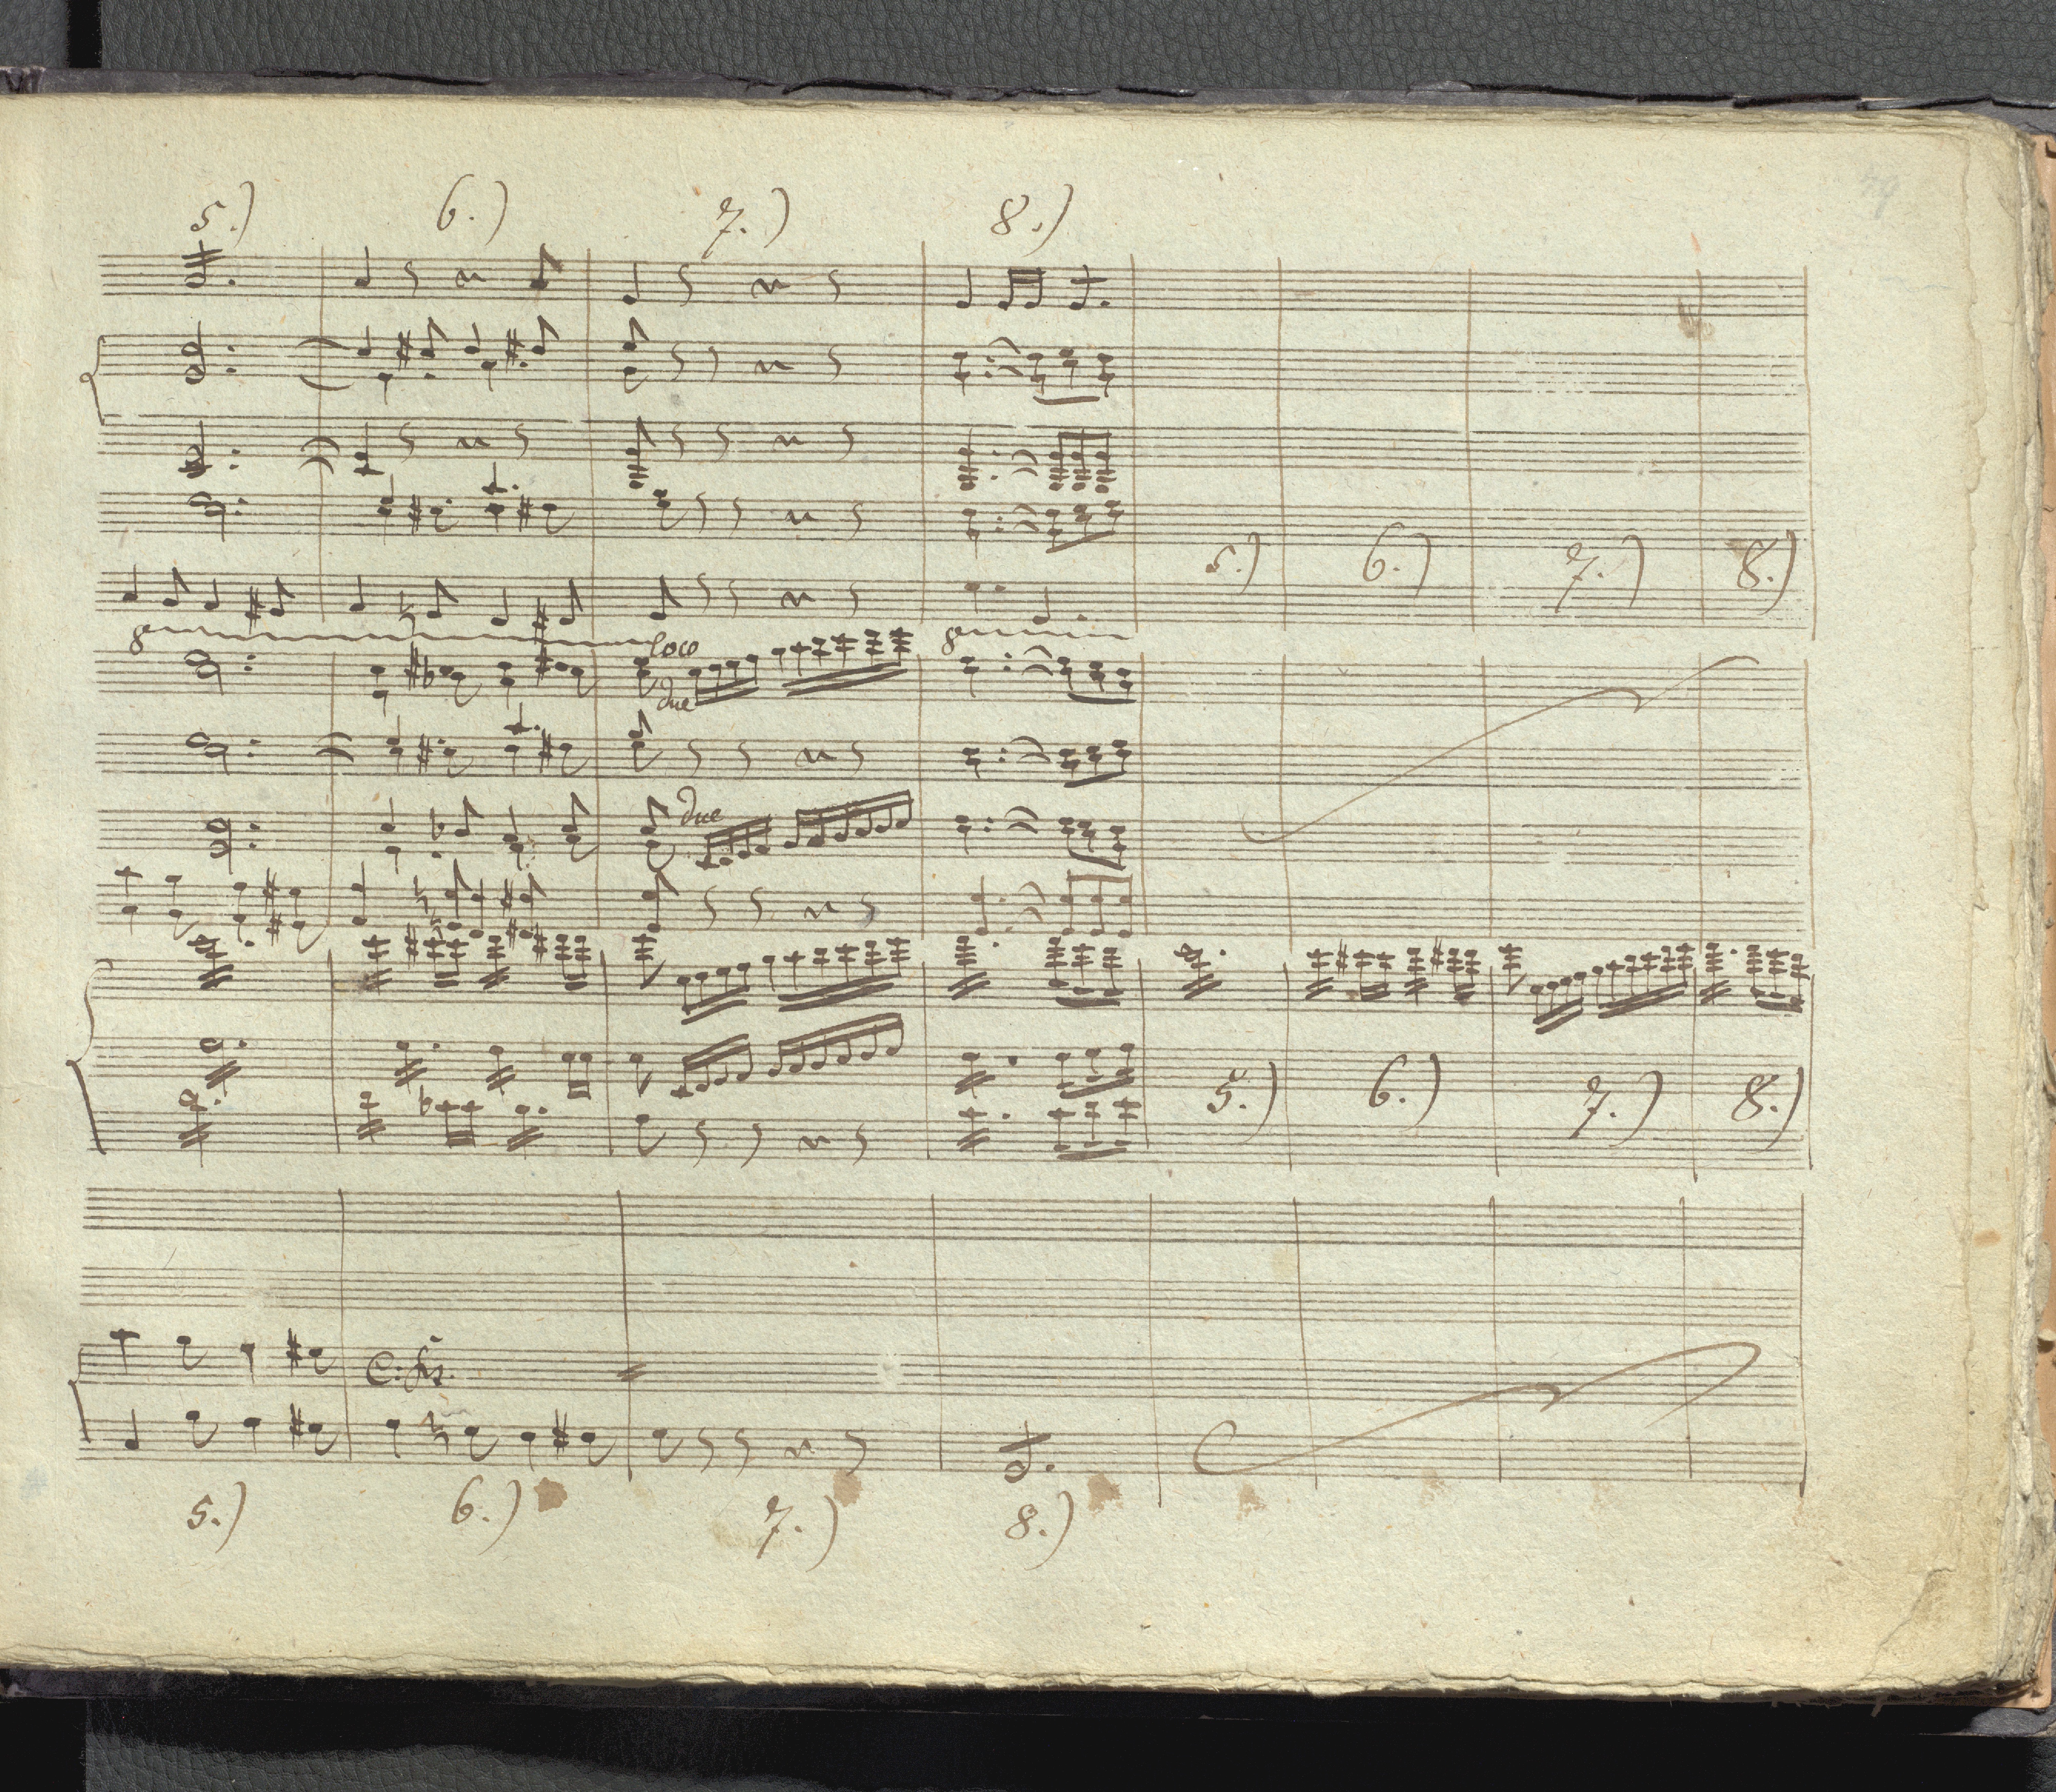 5.) 6.) 7.) 8.)
5.) 6.) 7.) 8.)
8 loco 8
due
due
5.) 6.) 7.) 8.)
5.) 6.) 7.) 8.)